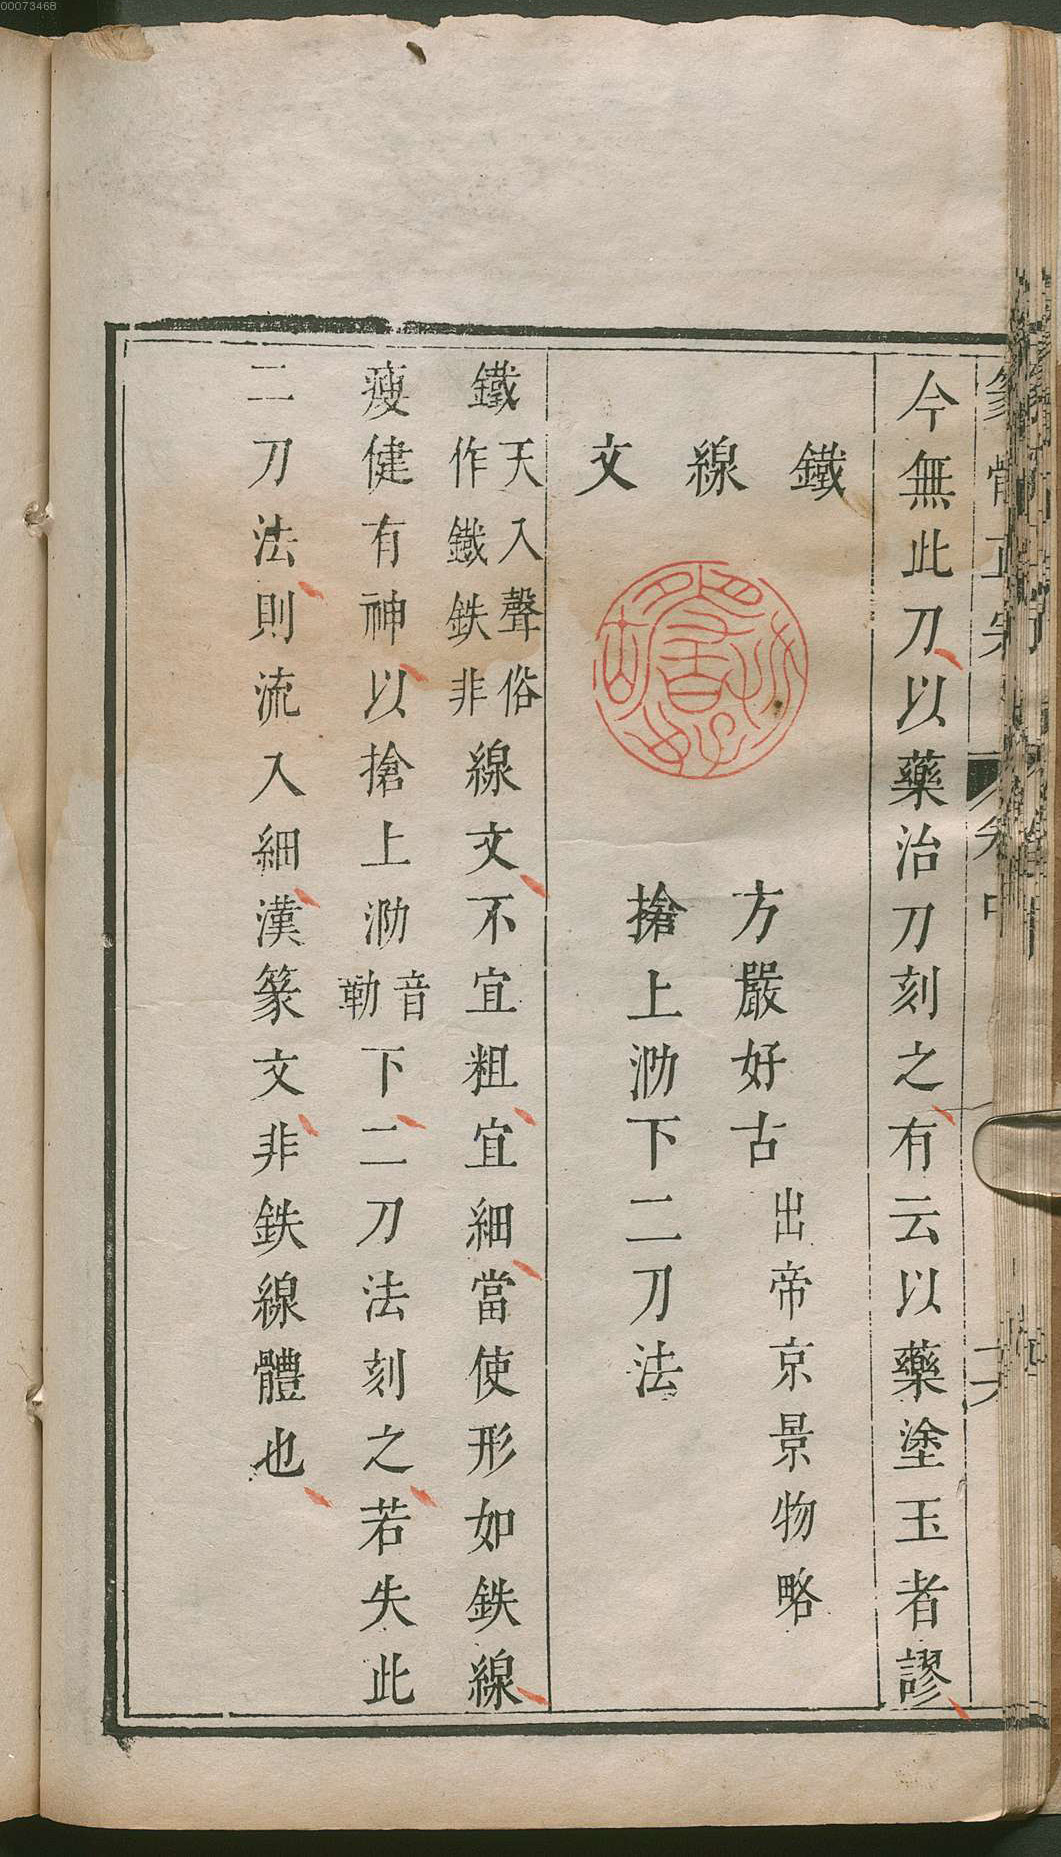 00073468
卷中
今無此刀以藥治刀刻之有云以藥塗玉者謬
鐵線文
方嚴好古出帝京景物略
搶上泐下二刀法
鐵天入聲俗作鐡鉄非線文不宜粗宜細當使形如鉄線
瘦健有神以搶上泐音勒下二刀法刻之若失此
二刀法則流入細漢篆文非鉄線體也